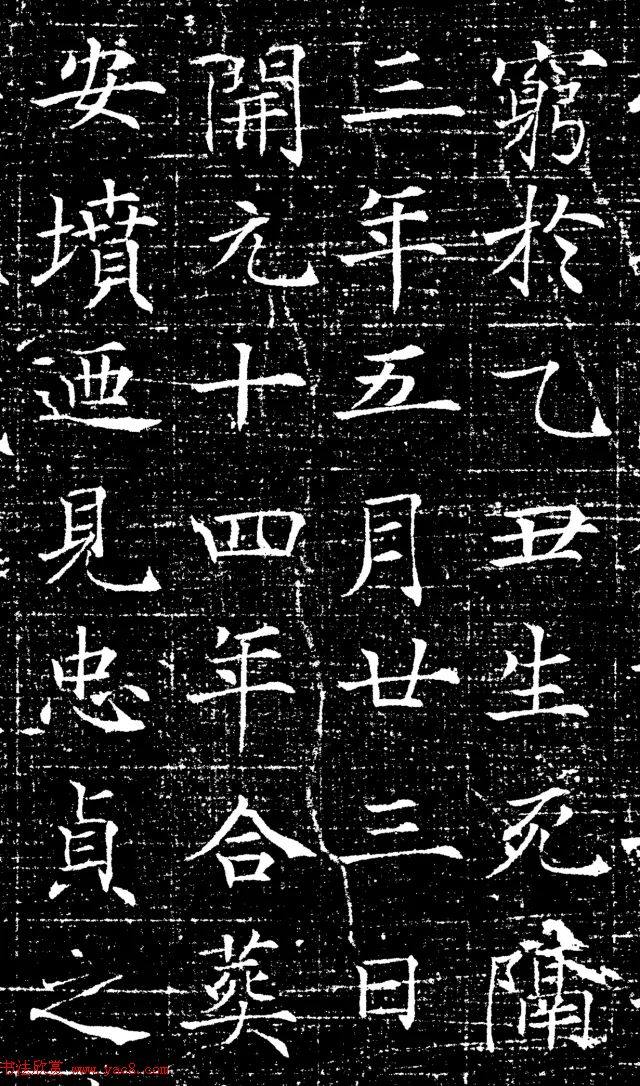 窮於乙丑生死隔
三年五月廿三日
開元十四年合葬
安墳迺見忠貞之
书法欣赏 www.yac8.com